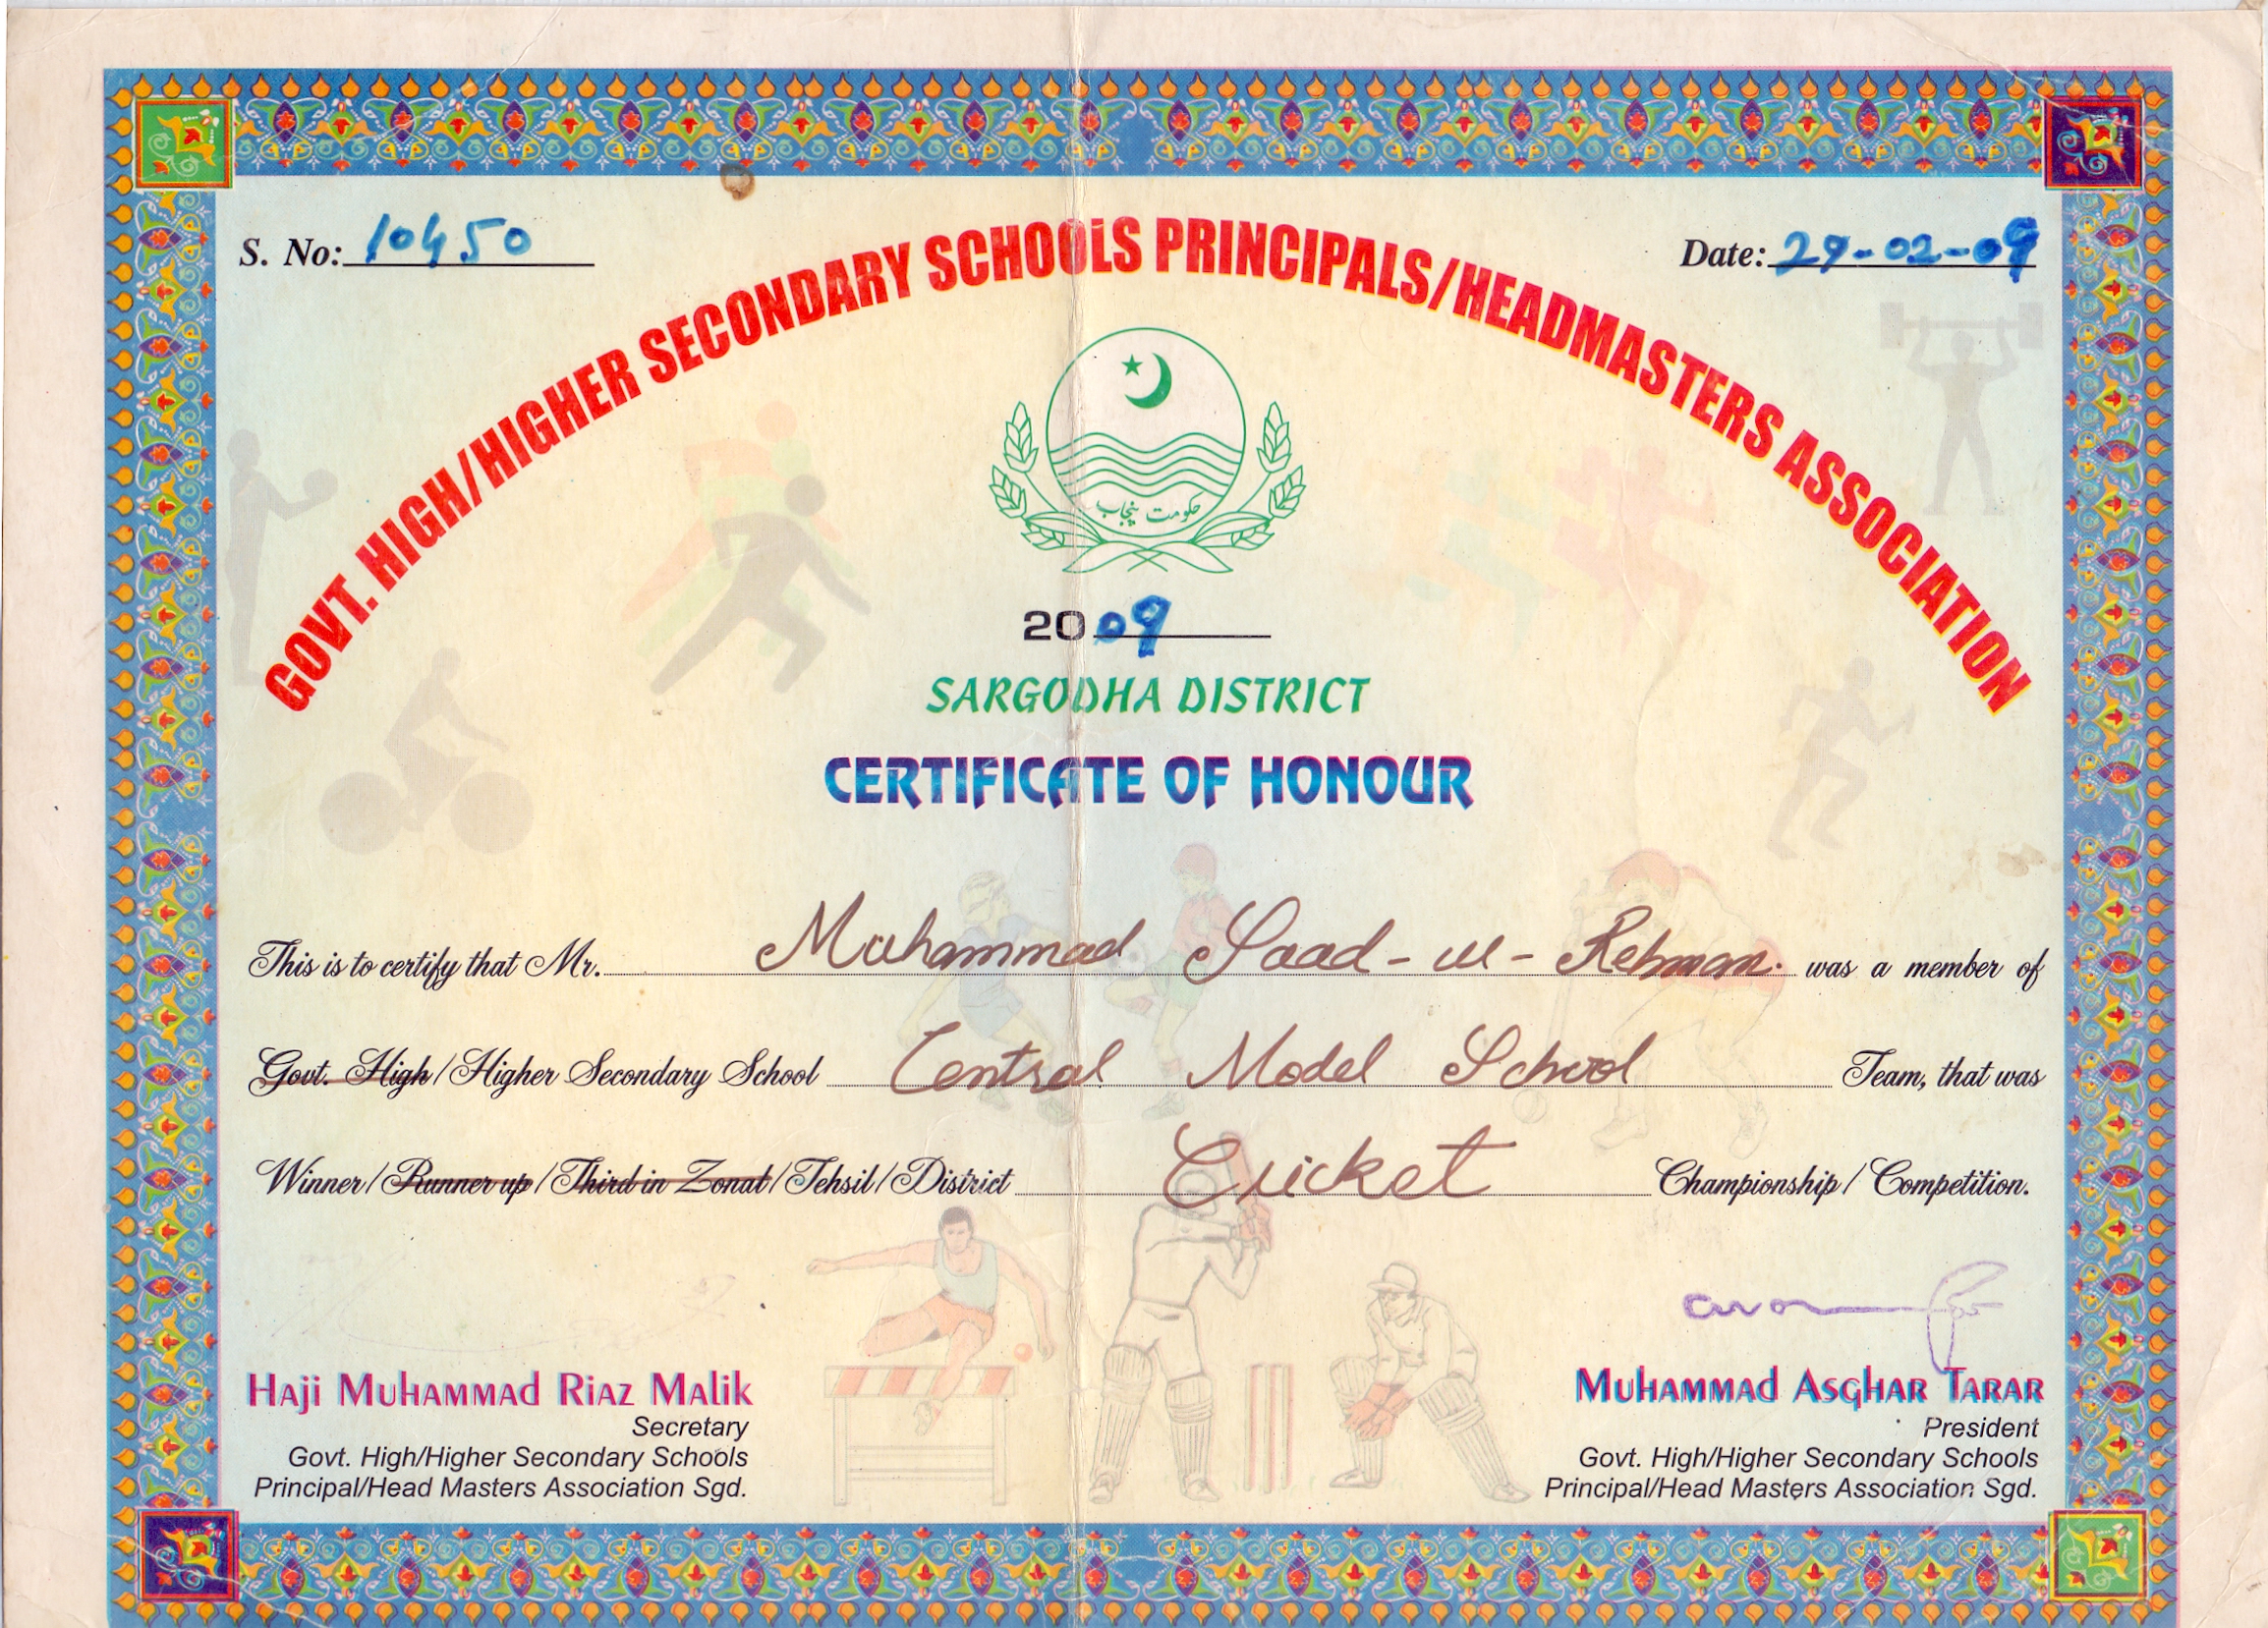 S. No: 10450
Date: 29-02-09
GOVT. HIGH/HIGHER SECONDARY SCHOOLS PRINCIPALS/HEADMASTERS ASSOCIATION
حکومت پنجاب
2009
SARGODHA DISTRICT
CERTIFICATE OF HONOUR
This is to certify that Mr. Muhammad Saad-ul-Rehman. was a member of
Govt. High/Higher Secondary School Central Model School Team, that was
Winner/Runner up/Third in Zonal/Tehsil/District Cricket Championship/Competition.
Haji Muhammad Riaz Malik
Secretary
Govt. High/Higher Secondary Schools
Principal/Head Masters Association Sgd.
Muhammad Asghar Tarar
President
Govt. High/Higher Secondary Schools
Principal/Head Masters Association Sgd.